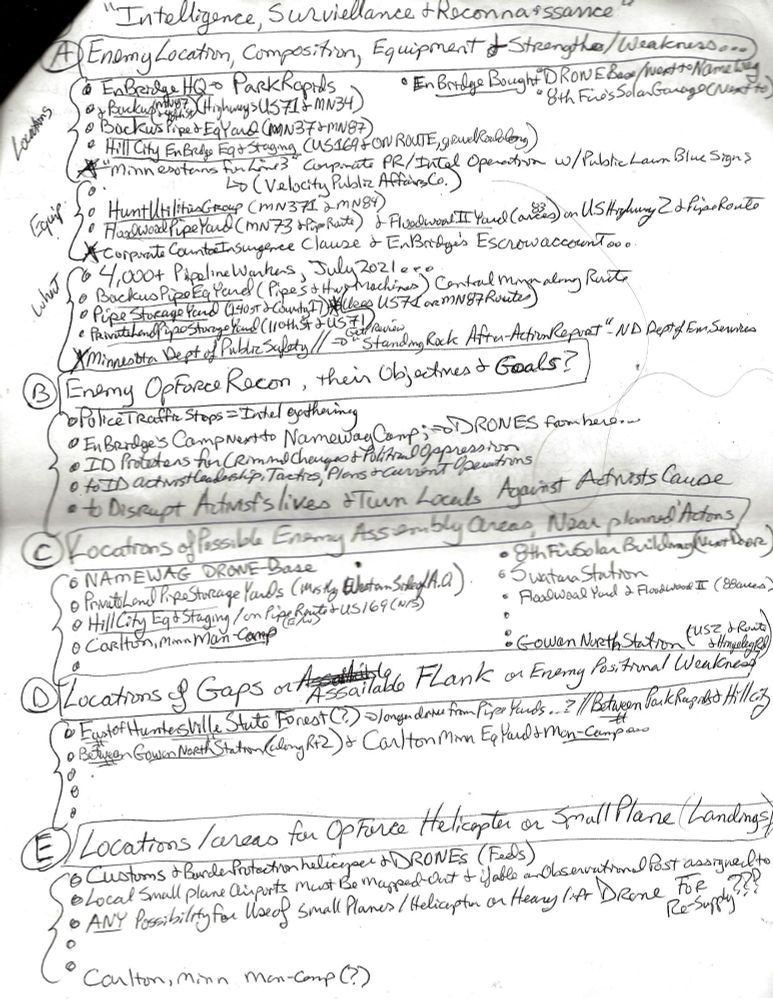 "Intelligence, Surviellance & Reconnaissance"
(A) Enemy Location, Composition, Equipment & Strengths/Weakness...
Locations
• EnBridge HQ → Park Rapids
• EnBridge Bought "DRONE Base/next to Namewag
• & Backus (Highways US71 & MN34)
• 8th Fire's Solar Garage (Next to)
• Backus Pipe & Eq Yard (MN37 & MN87)
• Hill City EnBridge Eq & Staging (US169 & ON ROUTE, gravel Road long)
* "Minnesotans for Line 3" Corporate PR/Intel Operation w/Public Lawn Blue Signs
• ↳ (Velocity Public Affairs Co.)
Equip
• Hunt Utilities Group (MN371 & MN84)
• Floodwood Pipe Yard (MN73 & Pipe Route) & Floodwood II Yard (88 acres) on US Highway 2 & Pipe Route
* Corporate Counter Insurgence Clause & EnBridge's Escrow account...
What
• 4,000+ Pipeline Workers, July 2021...
• Backus Pipe Eq Yard (Pipes & Hvy Machines) Central Minn along Route
• Pipe Storage Yard (140 St & County I) * (uses US71 or MN87 Routes)
• Private Land Pipe Storage Yard (110th St & US 71)
* Minnesota Dept of Public Safety // → Got Review "Standing Rock After-Action Report" - ND Dept of Em. Services
(B) Enemy OpForce Recon, their Objectives & Goals?
• Police Traffic Stops = Intel gathering
• EnBridge's Camp Next to Namewag Camp; → DRONES from here...
• ID Protesters for Criminal Charges & Political Oppression
• to ID activist leadership, Tactics, Plans & Current Operations
• to Disrupt Activist's lives & Turn Locals Against Activists Cause
(C) Locations of Possible Enemy Assembly areas, Near planned Actions
• NAMEWAG DRONE-Base
• 8th Fire Solar Building (Next Door)
• Private Land Pipe Storage Yards (mostly Western Side of A.O)
• Swatara Station
• Hill City Eq & Staging/on Pipe Route (E/W) & US169 (N/S)
• Floodwood Yard & Floodwood II (88 acres)
• Carlton, Minn Man-Camp
•
•
• Gowan North Station (US2 & Route
(D) Locations of Gaps or Assailable FLank or Enemy Positional Weakness
• East of Huntersville State Forest (?) → longer drive from Pipe Yards...? // Between Park Rapids & Hill city
• Between Gowan North Station (along Rt 2) & Carlton Minn Eq Yard & Man-Camp
•
•
•
•
(E) Locations/areas for OpForce Helicopter or Small Plane (Landings)
• Customs & Border Protection helicopter & DRONEs (Feds)
• Local Small plane airports must Be mapped-out & if able an Observational Post assigned to
• ANY Possibility for Use of Small Planes/Helicopter or Heavy lift Drone FOR Re-Supply???
•
•
Carlton, Minn Man-Camp (?)